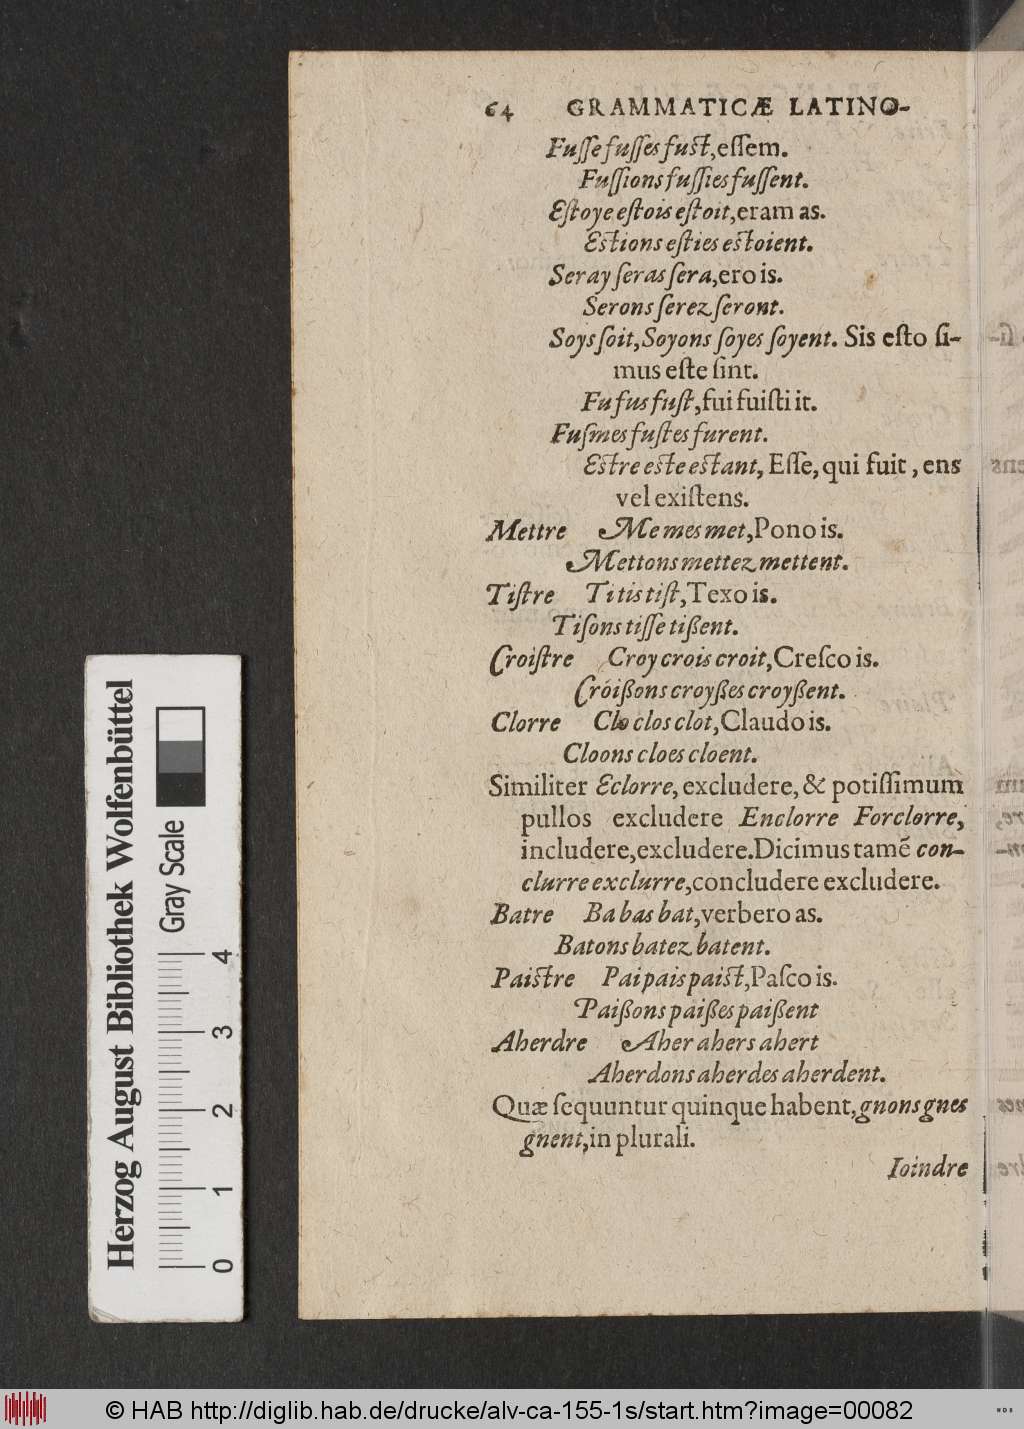 64 GRAMMATICÆ LATINO-
Fuſſe fuſſes fuſt, eſſem.
Fuſſions fuſſies fuſſent.
Eſtoye eſtois eſtoit, eram as.
Eſtions eſties eſtoient.
Seray ſeras ſera, ero is.
Serons ſerez ſeront.
Soys ſoit, Soyons ſoyes ſoyent. Sis eſto ſi-
mus eſte ſint.
Fu fus fuſt, fui fuiſti it.
Fuſmes fuſtes furent.
Eſtre eſte eſtant, Eſſe, qui fuit, ens
vel exiſtens.
Mettre Me mes met, Pono is.
Mettons mettez mettent.
Tiſtre Ti tis tiſt, Texo is.
Tiſons tiſſe tißent.
Croiſtre Croy crois croit, Creſco is.
Cróißons croyßes croyßent.
Clorre Clo clos clot, Claudo is.
Cloons cloes cloent.
Similiter Eclorre, excludere, & potiſſimum
pullos excludere Enclorre Forclorre,
includere, excludere. Dicimus tamẽ con-
clurre exclurre, concludere excludere.
Batre Ba bas bat, verbero as.
Batons batez batent.
Paiſtre Pai pais paiſt, Paſco is.
Paißons paißes paißent
Aherdre Aher ahers ahert
Aherdons aherdes aherdent.
Quæ ſequuntur quinque habent, gnons gnes
gnent, in plurali.
Ioindre
Herzog August Bibliothek Wolfenbüttel
Gray Scale
0 1 2 3 4
© HAB http://diglib.hab.de/drucke/alv-ca-155-1s/start.htm?image=00082